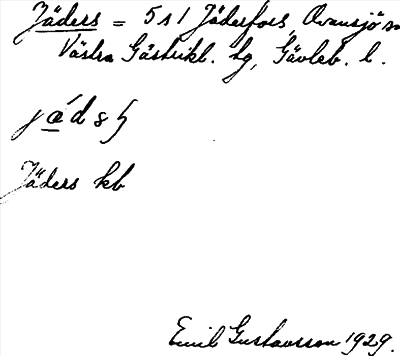 Jäders = 5 s 1 Jäderfors, Ovansjö sn
Västra Gästrikl. hg, Gävleb. l.
Jäders kb
Emil Gustavsson 1929.